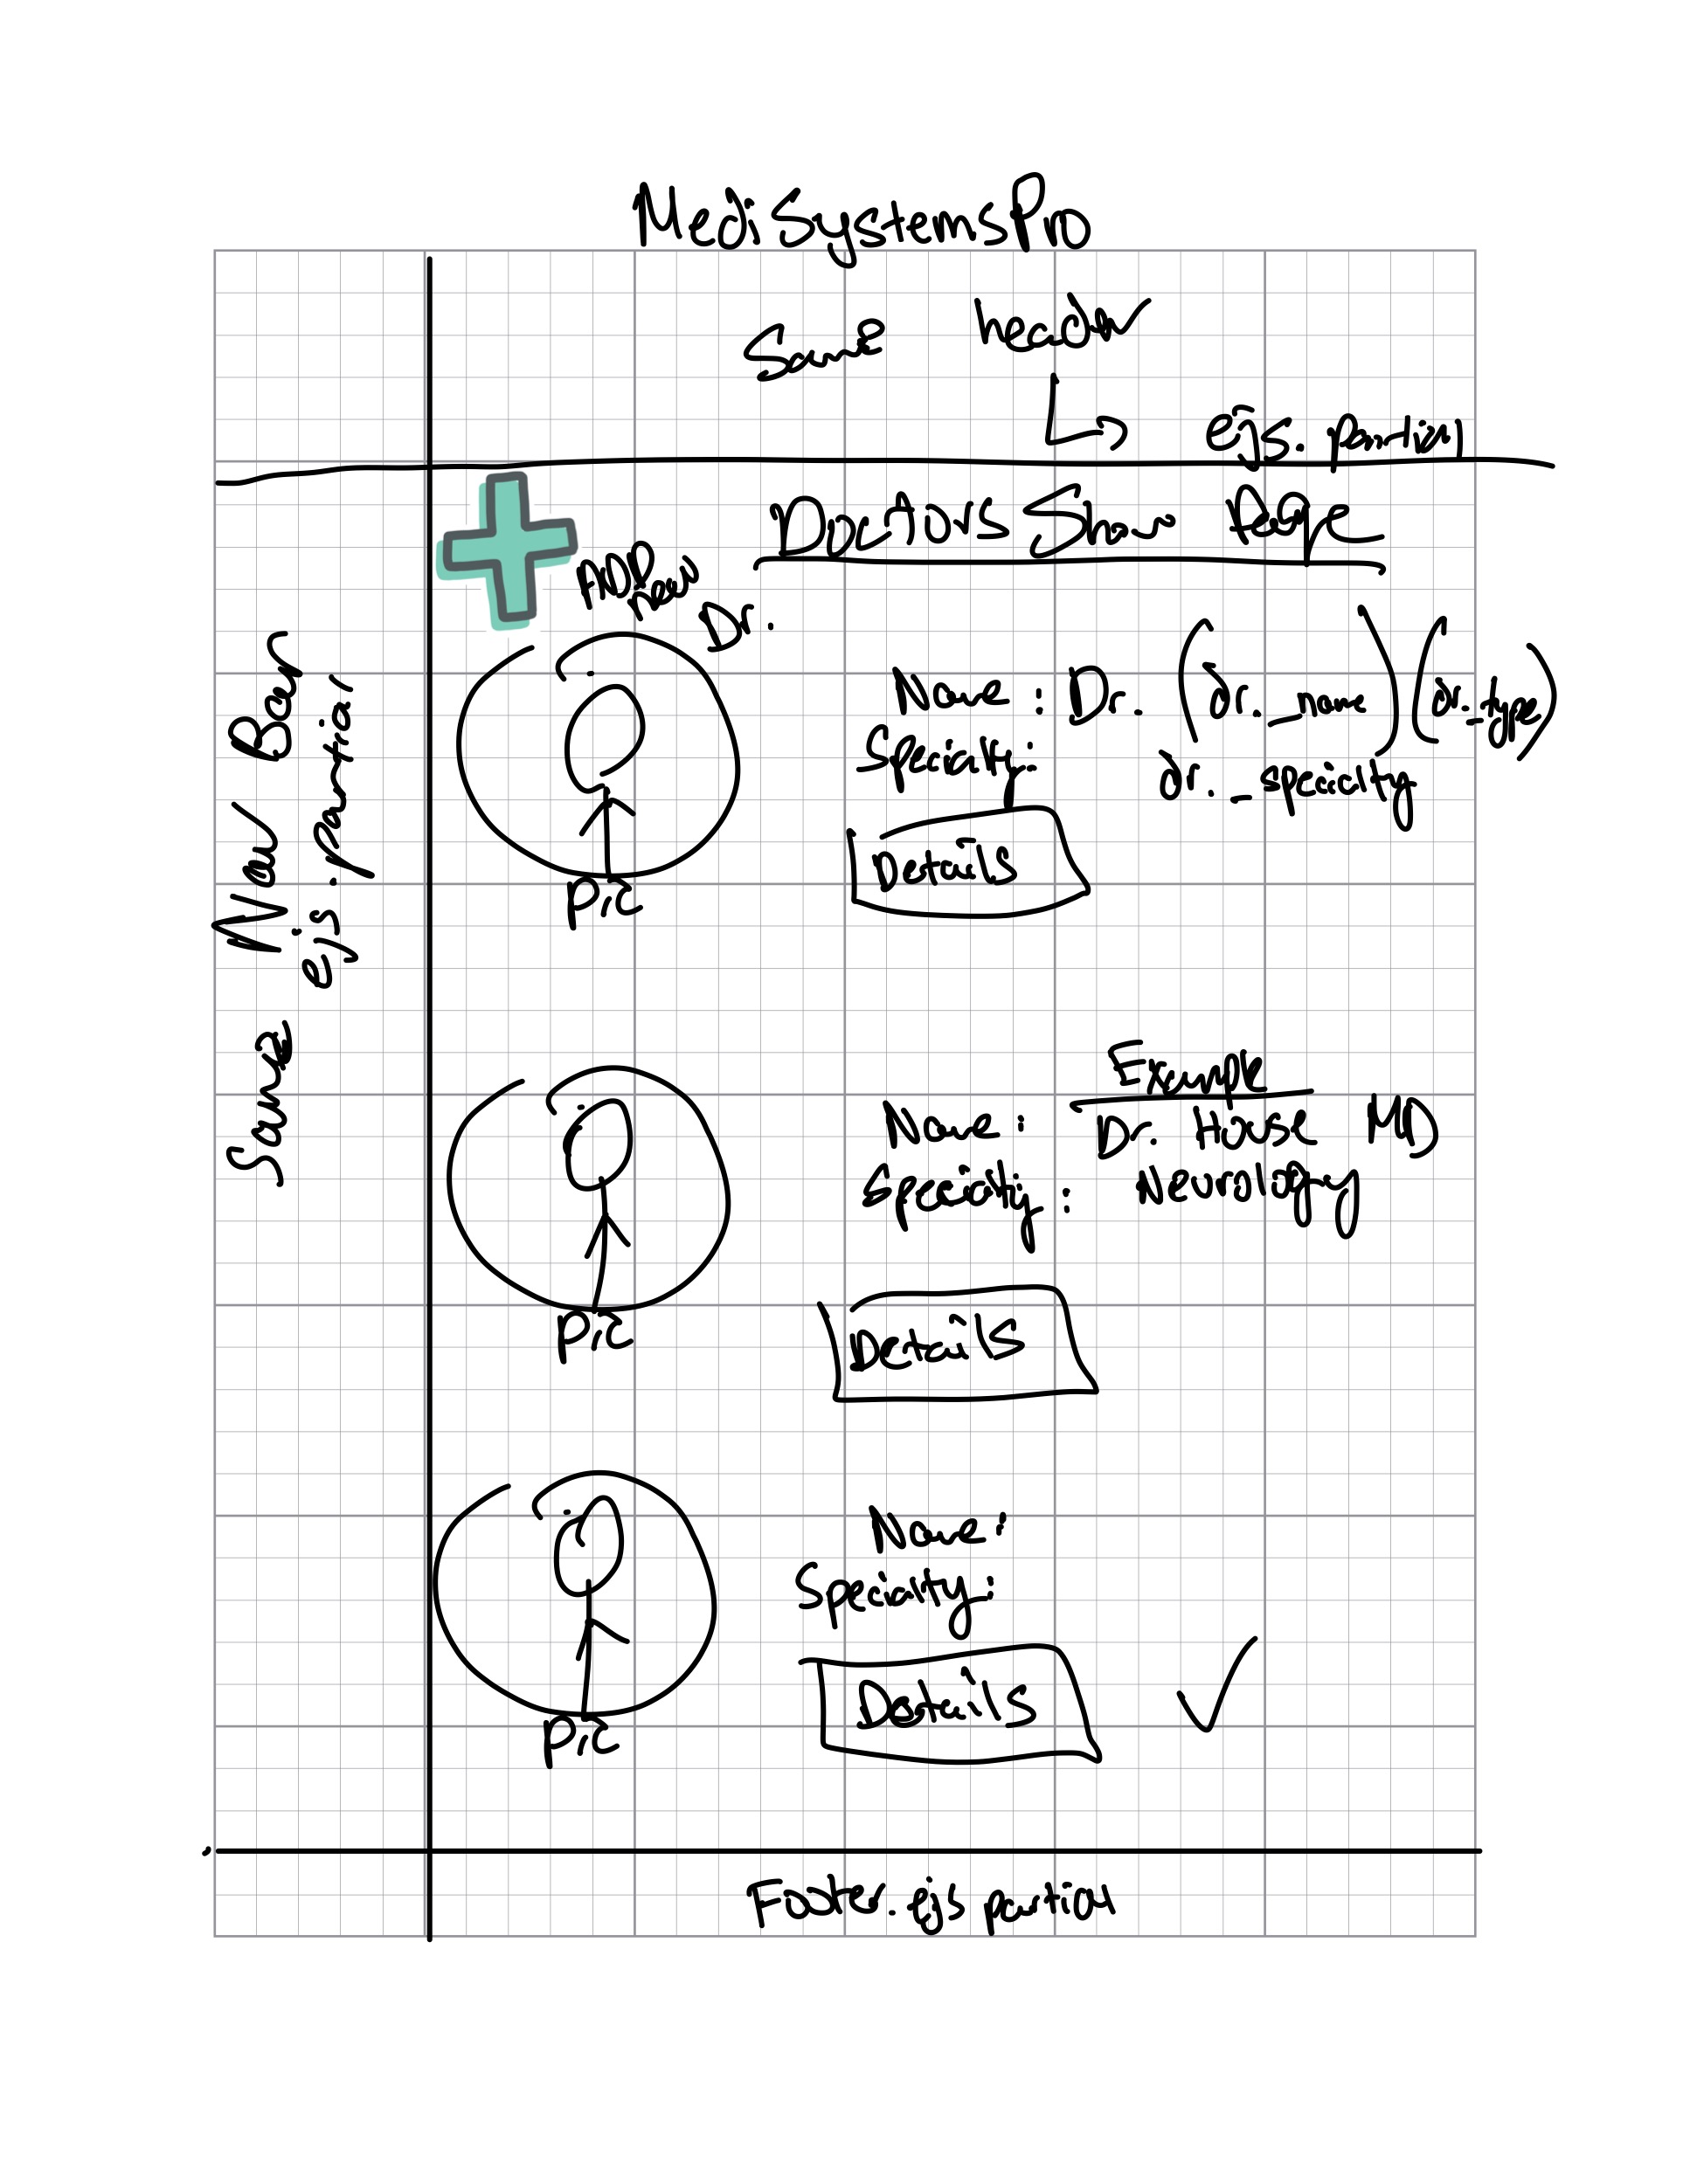 MediSystemsPro
Same header
ejs. partial
Doctors Show Page
ADD
New
Dr.
Same Nav Bar
ejs. partial
Name : Dr. (dr._name) (dr._type)
Specialty: dr._specialty
Details
Pic
Example
Name : Dr. House MD
Specialty : Neurology
Details
Pic
Name :
Specialty :
Details
Pic
Footer. ejs partial